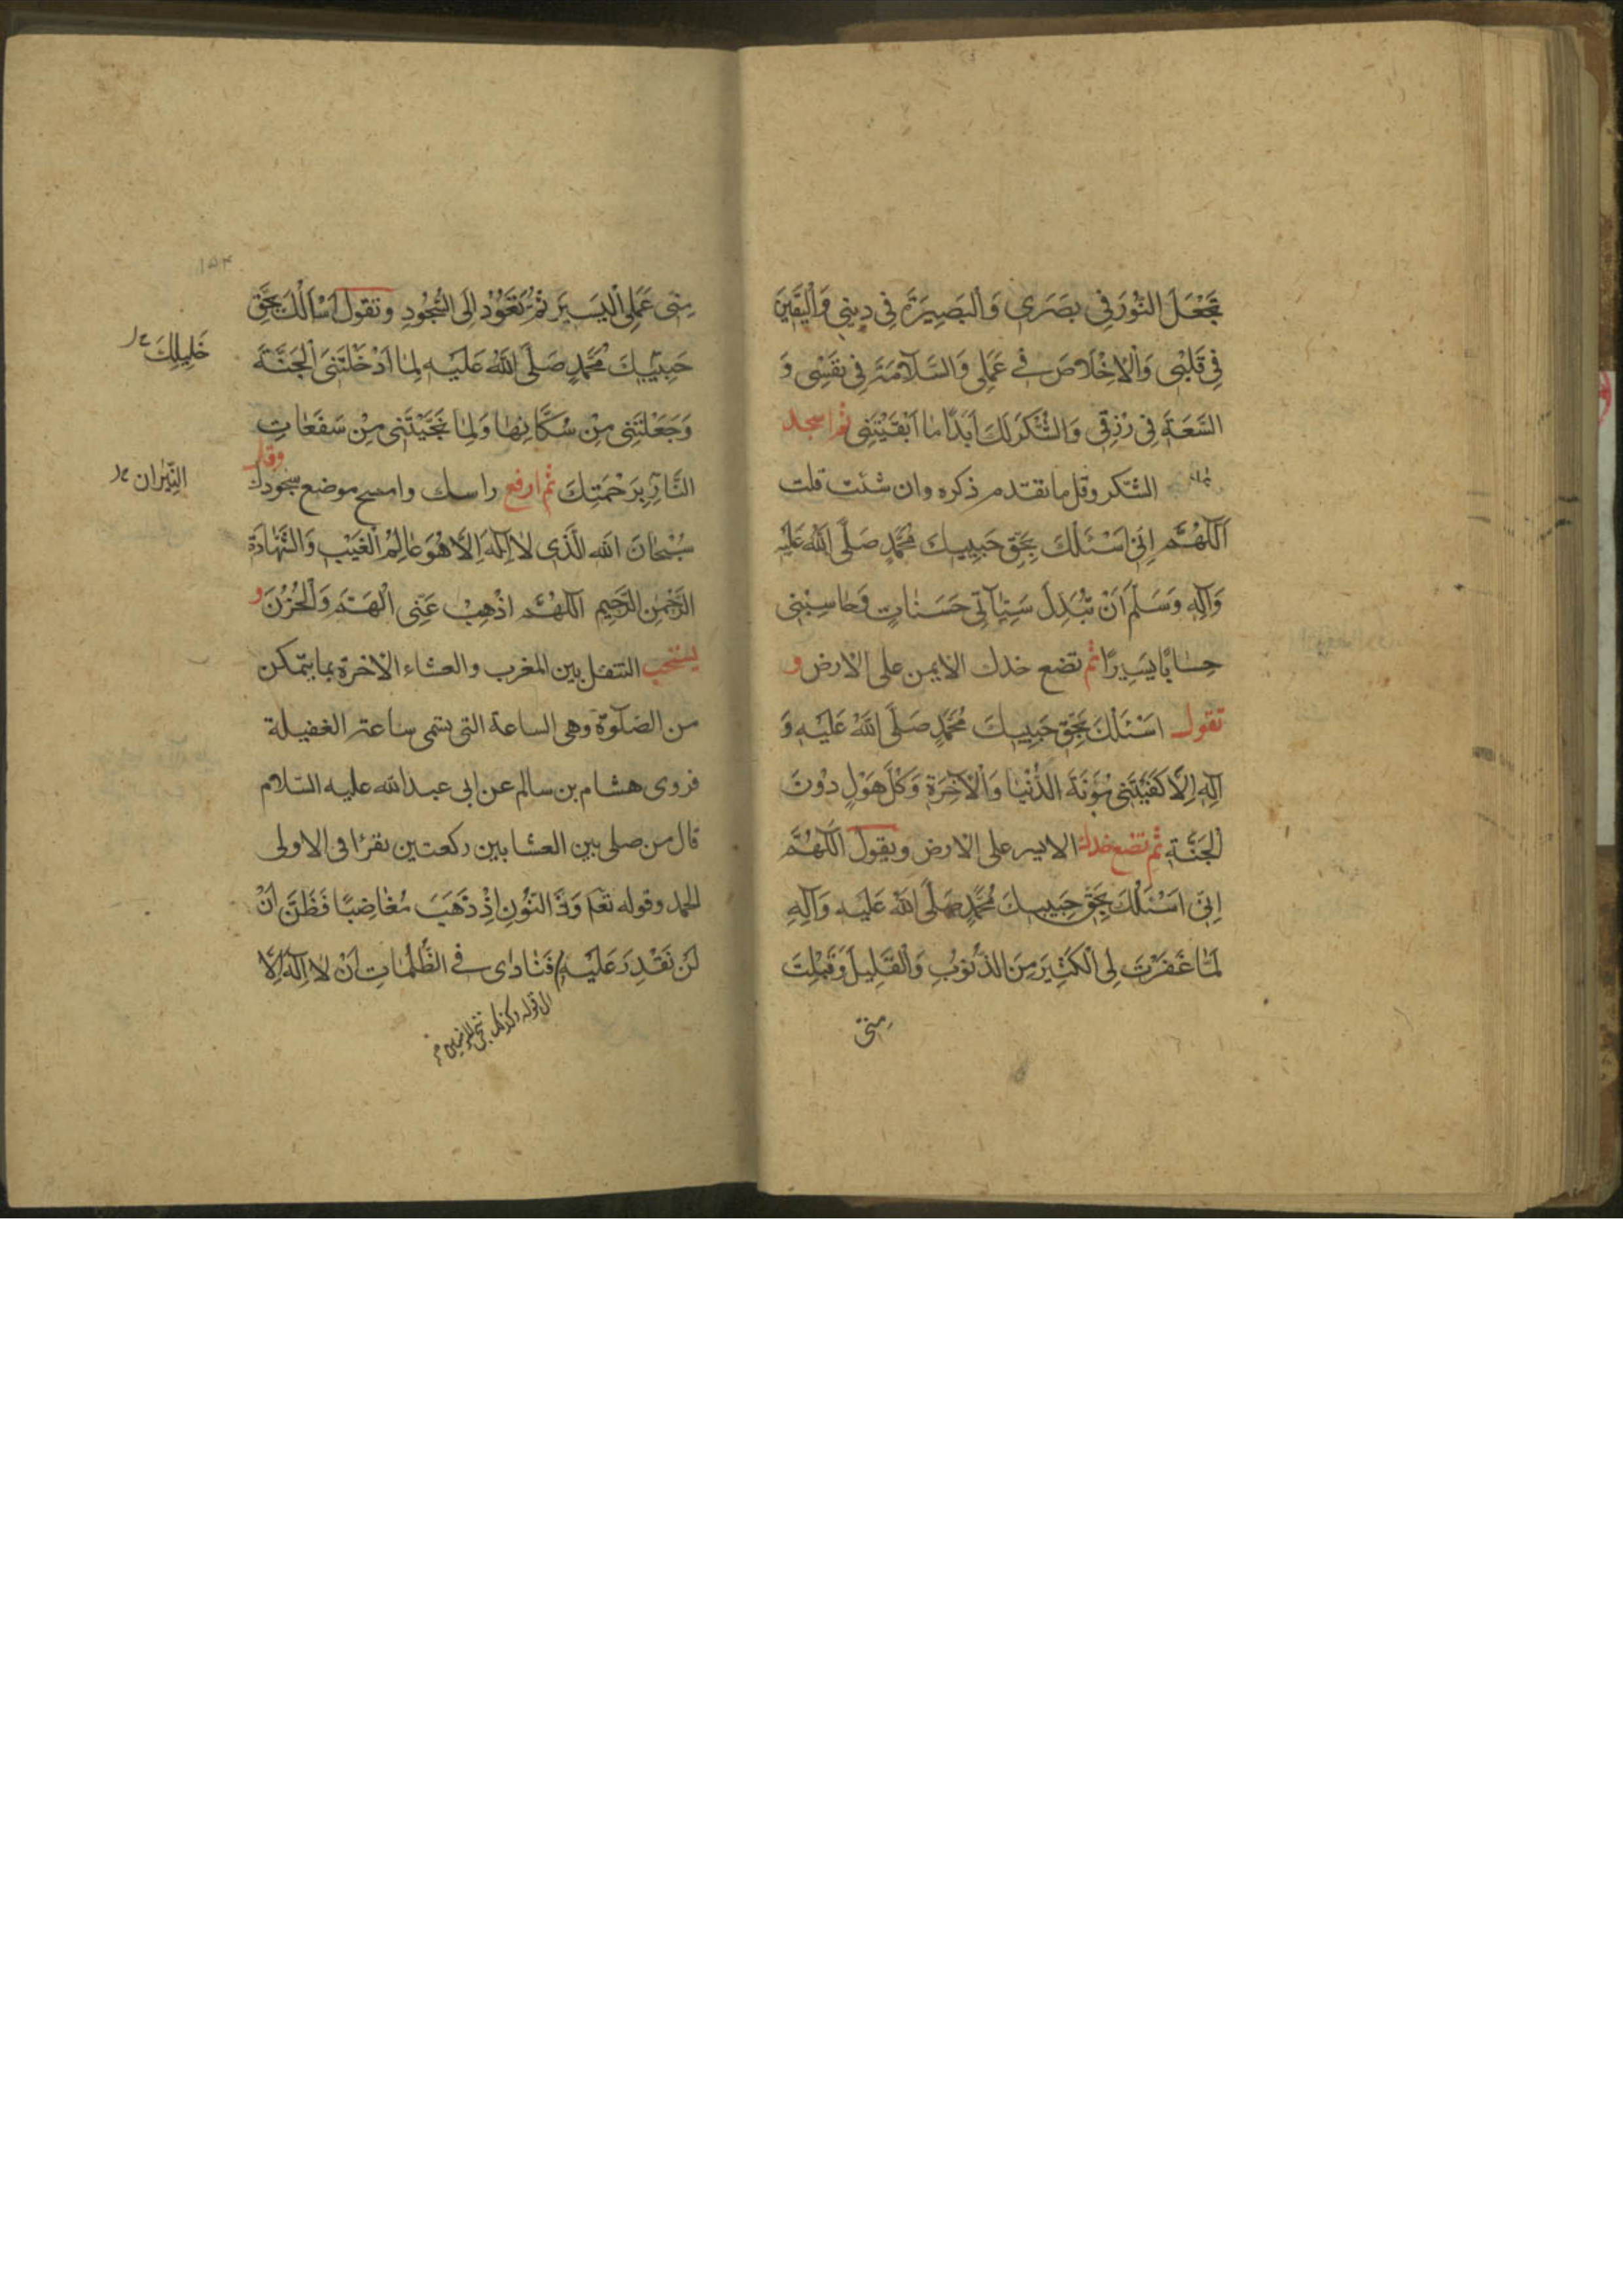 تَجْعَلَ النُّورَ فِي بَصَرِي وَالْبَصِيرَةَ فِي دِينِي وَالْيَقِينَ
فِي قَلْبِي وَالْاِخْلَاصَ فِي عَمَلِي وَالسَّلَامَةَ فِي نَفْسِي وَ
السَّعَةَ فِي رِزْقِي وَالشُّكْرَ لَكَ اَبَدًا مَا اَبْقَيْتَنِي ثم اسجد
الشكر وقل ما تقدم ذكره وان شئت قلت
اَللّٰهُمَّ اِنِّي اَسْئَلُكَ بِحَقِّ حَبِيبِكَ مُحَمَّدٍ صَلَّى اللّٰهُ عَلَيْهِ
وَآلِهِ وَسَلَّمَ اَنْ تُبَدِّلَ سَيِّآتِي حَسَنَاتٍ وَحَاسِبْنِي
حِسَابًا يَسِيرًا ثم تضع خدك الايمن على الارض و
تقول اَسْئَلُكَ بِحَقِّ حَبِيبِكَ مُحَمَّدٍ صَلَّى اللّٰهُ عَلَيْهِ وَ
آلِهِ اِلَّا كَفَيْتَنِي مَؤُنَةَ الدُّنْيَا وَالْآخِرَةِ وَكُلَّ هَوْلٍ دُونَ
الْجَنَّةِ ثم تضع خدك الايسر على الارض ويقول اَللّٰهُمَّ
اِنِّي اَسْئَلُكَ بِحَقِّ حَبِيبِكَ مُحَمَّدٍ صَلَّى اللّٰهُ عَلَيْهِ وَآلِهِ
لَمَّا غَفَرْتَ لِي الْكَثِيرَ مِنَ الذُّنُوبِ وَالْقَلِيلَ وَقَبِلْتَ
مِنِّي
١٥٤
مِنِّي عَمَلِي الْيَسِيرَ ثُمَّ تَعُودُ اِلَى السُّجُودِ وتقول اَسْاَلُكَ بِحَقِّ
حَبِيبِكَ مُحَمَّدٍ صَلَّى اللّٰهُ عَلَيْهِ لَمَّا اَدْخَلْتَنِي الْجَنَّةَ
خَلِيلِكَ
وَجَعَلْتَنِي مِنْ سُكَّانِهَا وَلَمَّا نَجَّيْتَنِي مِنْ سَفَعَاتِ
النَّارِ بِرَحْمَتِكَ ثم ارفع راسك وامسح موضع سجودك وقل
النِّيرَانِ
سُبْحَانَ اللّٰهِ الَّذِي لَا اِلٰهَ اِلَّا هُوَ عَالِمُ الْغَيْبِ وَالشَّهَادَةِ
الرَّحْمٰنِ الرَّحِيمِ اَللّٰهُمَّ اَذْهِبْ عَنِّي الْهَمَّ وَالْحُزْنَ و
يستحب التنفل بين المغرب والعشاء الآخرة بما يتمكن
من الصلوة وهي الساعة التي تسمى ساعة الغفيلة
فروى هشام بن سالم عن ابي عبد الله عليه السلام
قال من صلى بين العشايين ركعتين يقرئا في الاولى
الحمد وقوله تع وَذَا النُّونِ اِذْ ذَهَبَ مُغَاضِبًا فَظَنَّ اَنْ
لَنْ نَقْدِرَ عَلَيْهِ فَنَادٰى فِي الظُّلُمَاتِ اَنْ لَا اِلٰهَ اِلَّا
الى قوله وكذلك ننجي المؤمنين